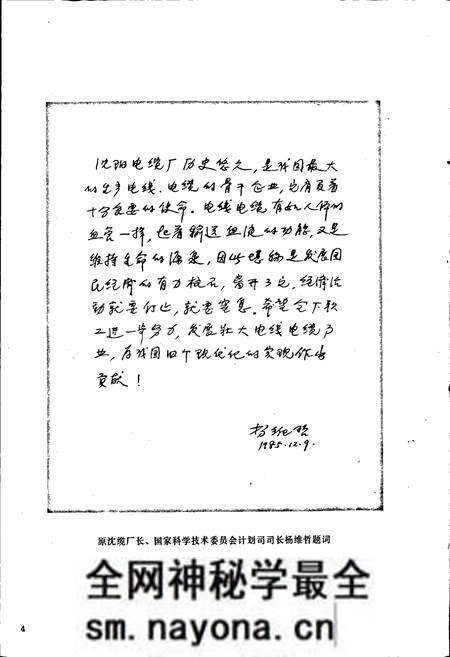 沈阳电缆厂历史悠久，是我国最大
的生产电线、电缆的骨干企业，也肩负着
十分重要的使命。电线电缆有如人体的
血管一样，起着输送血液的功能，又是
维持生命的海
民经济的有力柱石，离开了它，经济活
动就要停止，就要窒息。希望全厂职
工进一步努力，发展壮大电线电缆工
业，为我国四个现代化的实现作出
贡献！
杨维哲
1985.12.9.
原沈缆厂长、国家科学技术委员会计划司司长杨维哲题词
全网神秘学最全
sm.nayona.cn
4